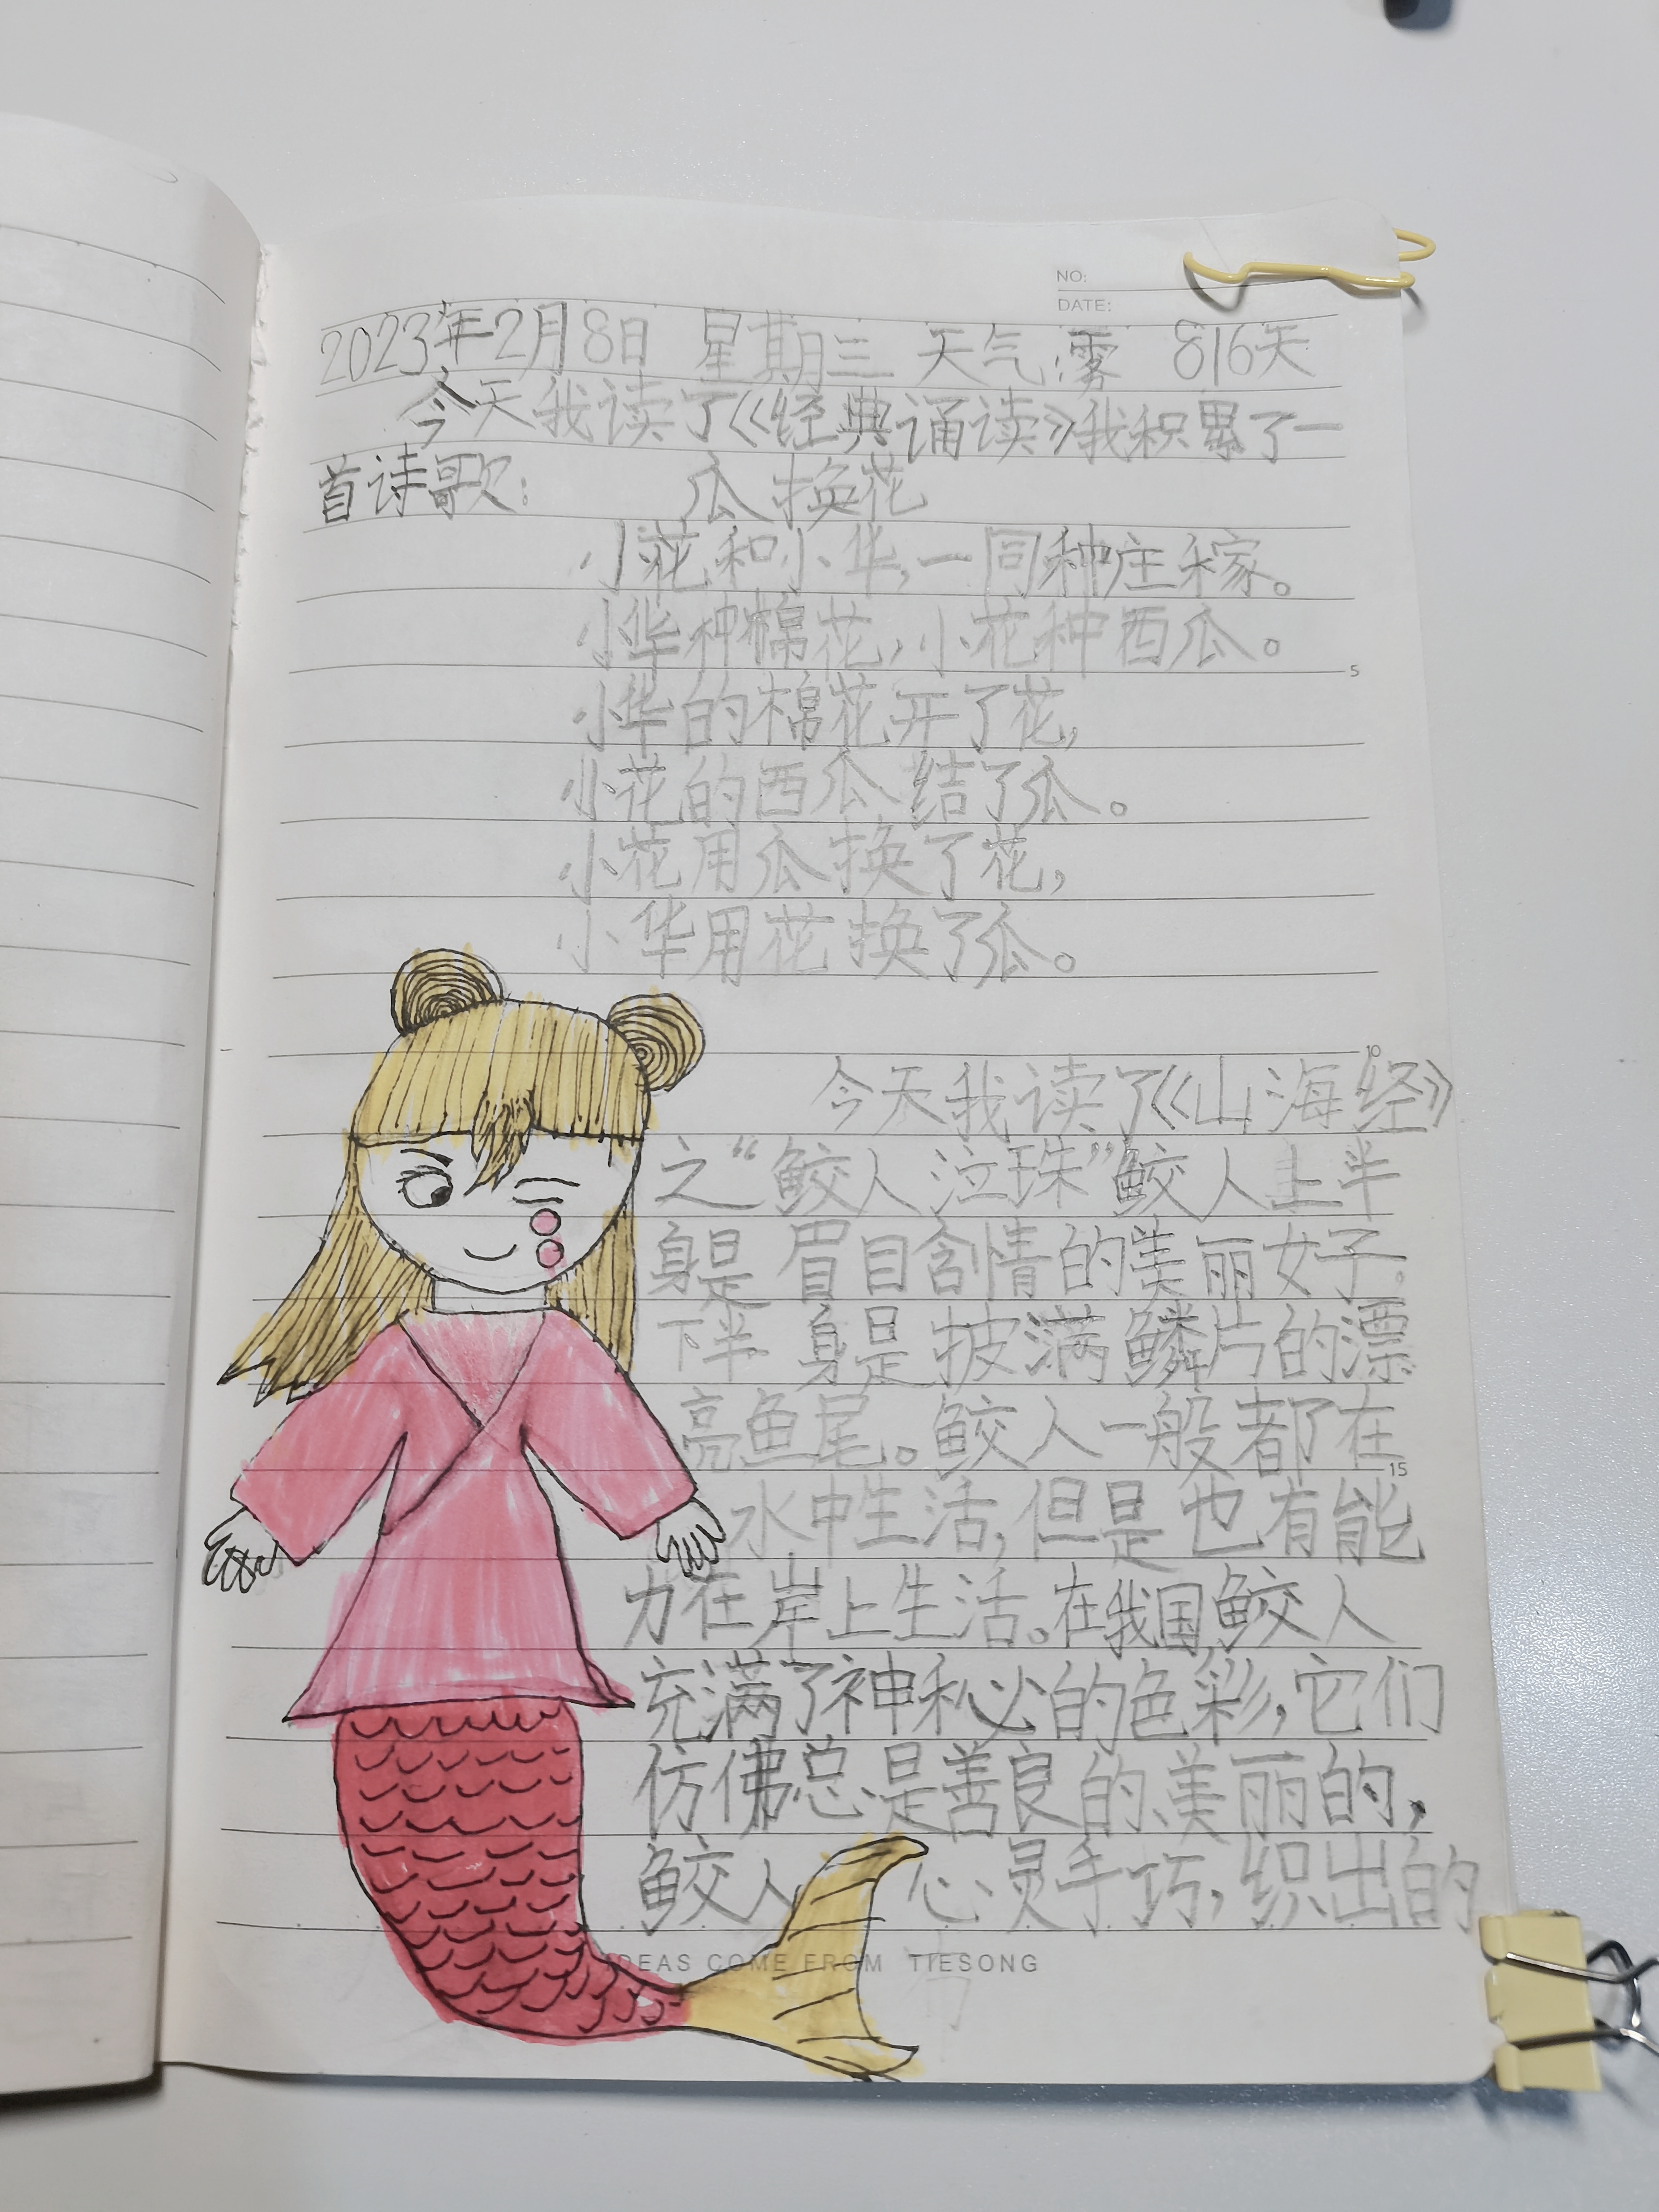 NO:
DATE:
2023年2月8日 星期三 天气:雾 816天
今天我读了《经典诵读》我积累了一
首诗歌: 瓜换花
小花和小华,一同种庄稼。
小华种棉花,小花种西瓜。
小华的棉花开了花,
小花的西瓜结了瓜。
小花用瓜换了花,
小华用花换了瓜。
今天我读了《山海经》
之“鲛人泣珠”鲛人上半
身是眉目含情的美丽女子。
下半身是披满鳞片的漂
亮鱼尾。鲛人一般都在
水中生活,但是也有能
力在岸上生活。在我国鲛人
充满了神秘的色彩,它们
仿佛总是善良的、美丽的,
鲛人心灵手巧,织出的
5
10
15
IDEAS COME FROM TIESONG